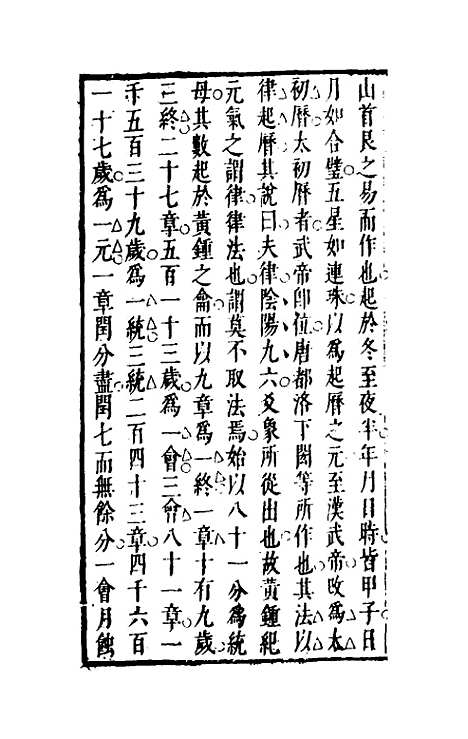 山首艮之易而作也起於冬至夜半年月日時皆甲子日
月如合璧五星如連珠以爲起曆之元至漢武帝改爲太
初曆太初曆者武帝即位唐都洛下閎等所作也其法以
律起曆其說曰夫律陰陽九六爻象所從出也故黃鍾紀
元氣之謂律律法也謂莫不取法焉始以八十一分爲統
母其數起於黃鍾之龠而以九章爲一終一章十有九歲
三終二十七章五百一十三歲爲一會三會八十一章一
千五百三十九歲爲一統三統二百四十三章四千六百
一十七歲爲一元一章閏分盡閏七而無餘分一會月蝕